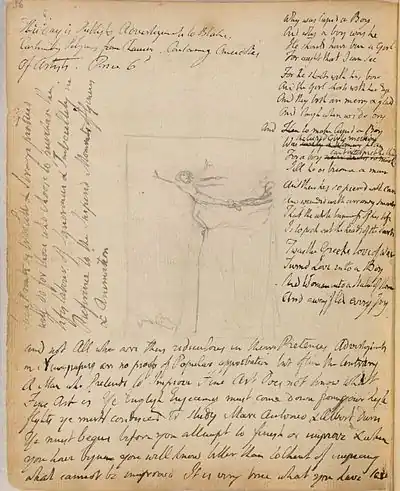 56
This day is Publishd Advertizements to Blakes
Canterbury Pilgrims from Chaucer. Containing Anecdotes
of Artists. Price 6d
Why was Cupid a Boy
And why a boy was he
He should have been a Girl
For aught that I can see
For he shoots with his bow
And the Girl shoots with her Eye
And they both are merry & glad
And laugh when we do cry
And to make Cupid a Boy
Was the Cupid Girls mocking plan
For a boy cant interpret the thing
Till he is become a man
And then hes so piercd with care
And wounded with arrowy smarts
That the whole business of his life
Is to pick out the heads of the darts
Twas the Greeks love of War
Turnd Love into a Boy
And Woman into a Statue of Stone
And away fled every Joy
life labour of ignorance & Imbecillity in
Reference to the Supreme Moments of Genius
& Animation
and not All who are thus ridiculous in their Pretences Advertizements
in Newspapers are no proofs of Popular approbation but often the Contrary
A Man who Pretends to Improve Fine Art Does not know what
Fine Art is Ye English Engravers must come down from your high
flights ye must condescend to study Marc Antonio & Albert Durer
Ye must begin before you attempt to finish or improve & when
you have begun you will know better than to think of improving
what cannot be improved It is very true what you have said